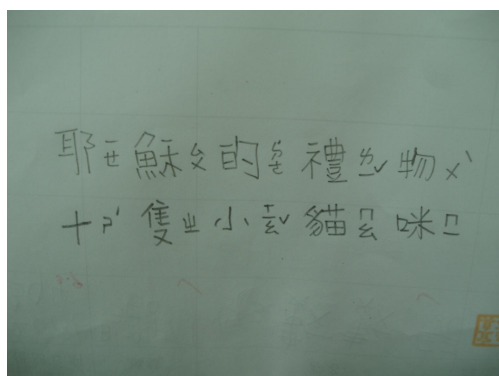 耶ㄧㄝ穌ㄙㄨ的˙ㄉㄜ禮ㄌㄧˇ物ㄨˋ
十ㄕˊ隻ㄓ小ㄒㄧㄠˇ貓ㄇㄠ咪ㄇㄧ